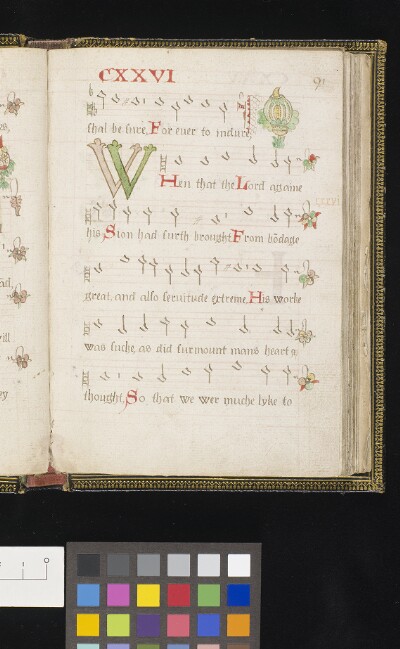 CXXVI
91
shal be sure, For euer to indure,
WHen that the Lord agame
his Sion had furth brought From bōdage
great, and also seruitude extreme, His worke
was suche, as did surmount mans heart &
thought, So, that we wer muche lyke to